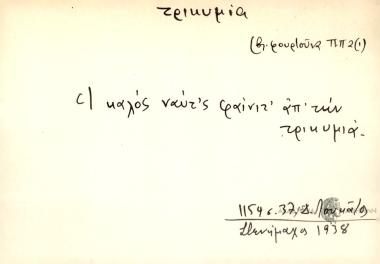 τρικυμία
(βλ. φουρτούνα ΠΠ2(1)
c) καλός ναύτ'ς φαίνιτ' ἀπ' τὴν
τρικυμιά.
1159 σ. 37, Δ. Λουκᾶτος
Στενήμαχος 1938